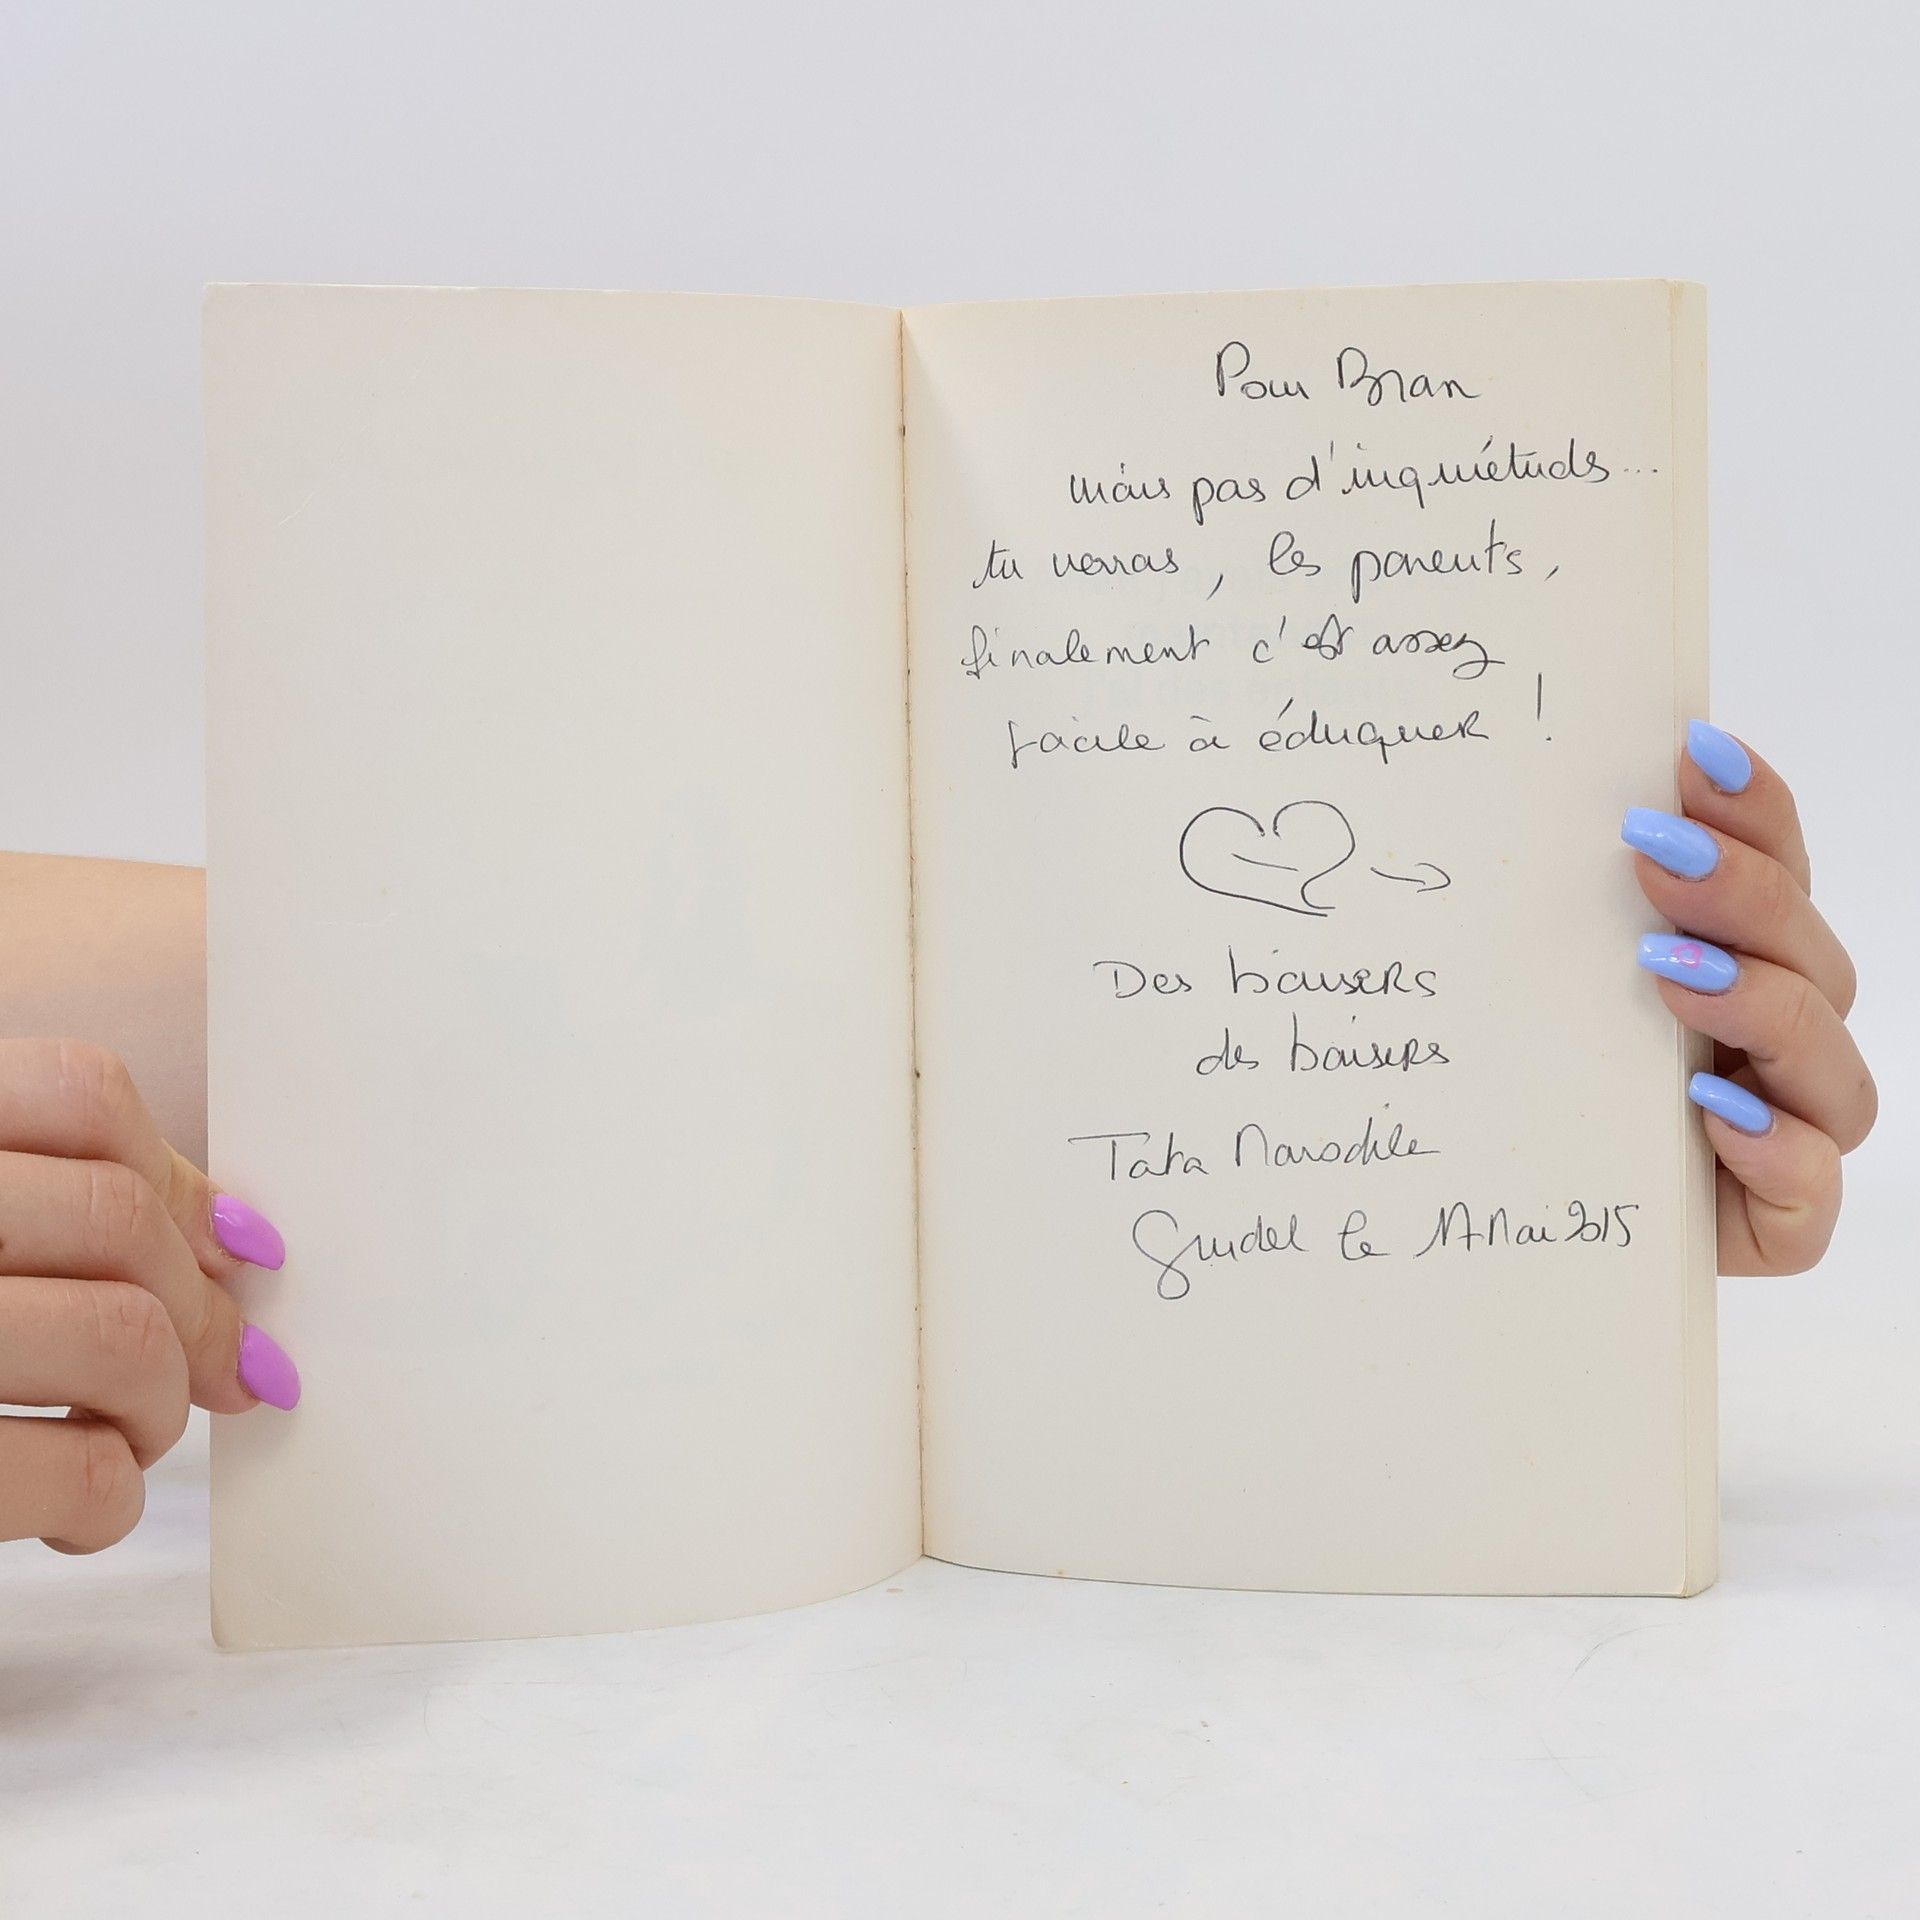 Pour Bran
mais pas d'inquiétude...
tu verras, les parents,
finalement c'est assez
facile à éduquer !
Des baisers
des baisers
Tata
Guidel le 17 Mai 2015